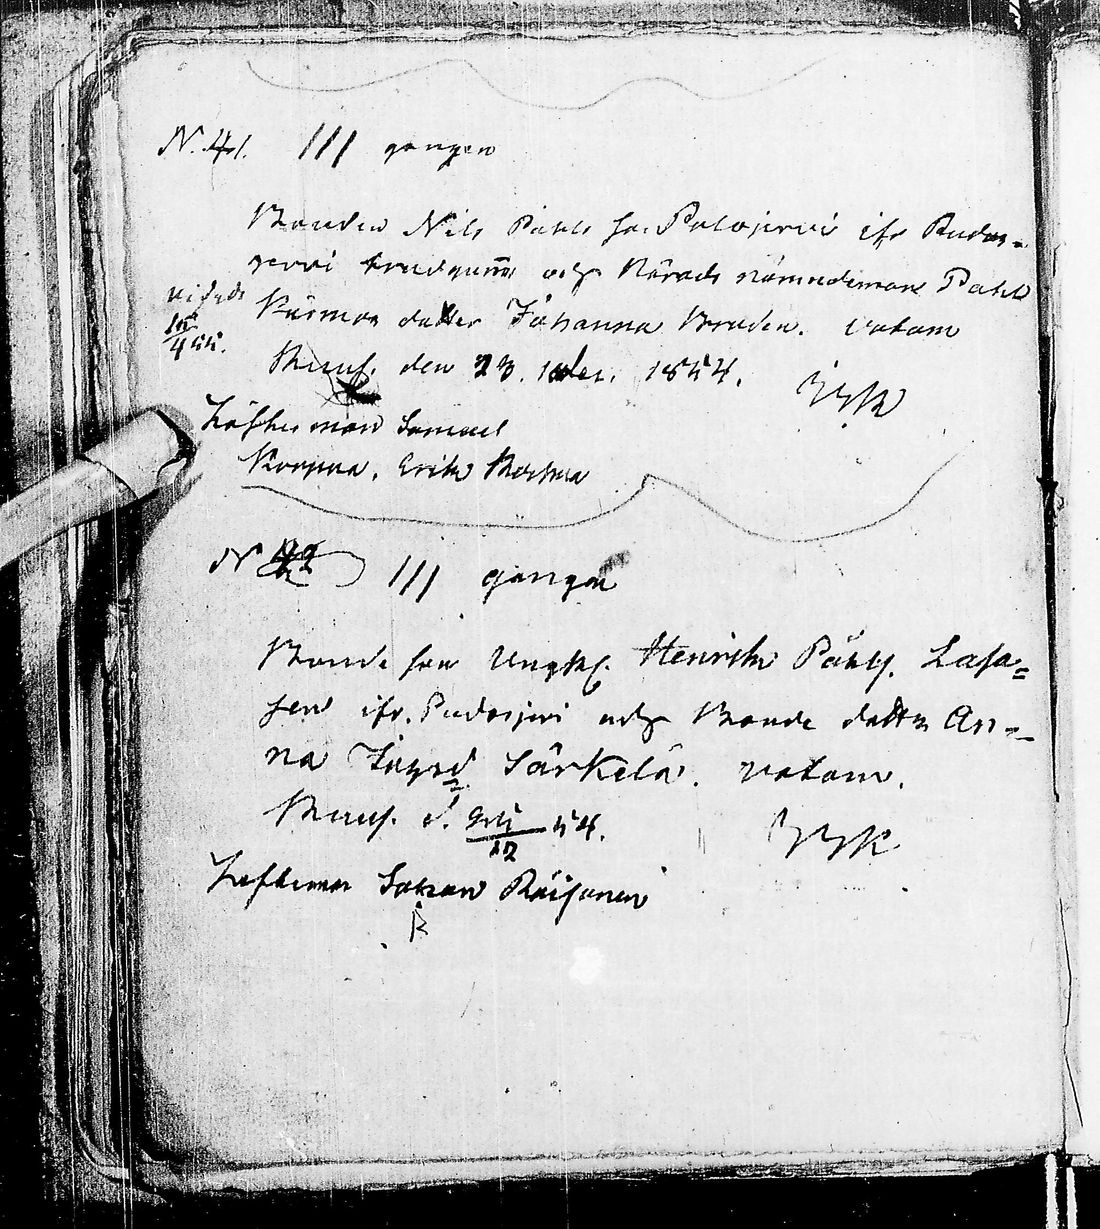 N. 41. III gången
Bonden Nils Påhls son Polojervi ifr Pudas-
jervi brudgum̄ och Härads nämndeman Påhls
Kärman dotter Johanna Bruden. votum
vigde
15/4 55.
Kuus. den 23. 1854.
Löfteman Samuel
Korpua, Erik
N 42 III gången
Bonde son Ungk. Henrik Påhls. Lasa=
sen ifr. Pudasjervi och Bonde dotter An-
na Särkelä. votum.
Kuus. d. 54.
12
Lofteman Johan Räisänen